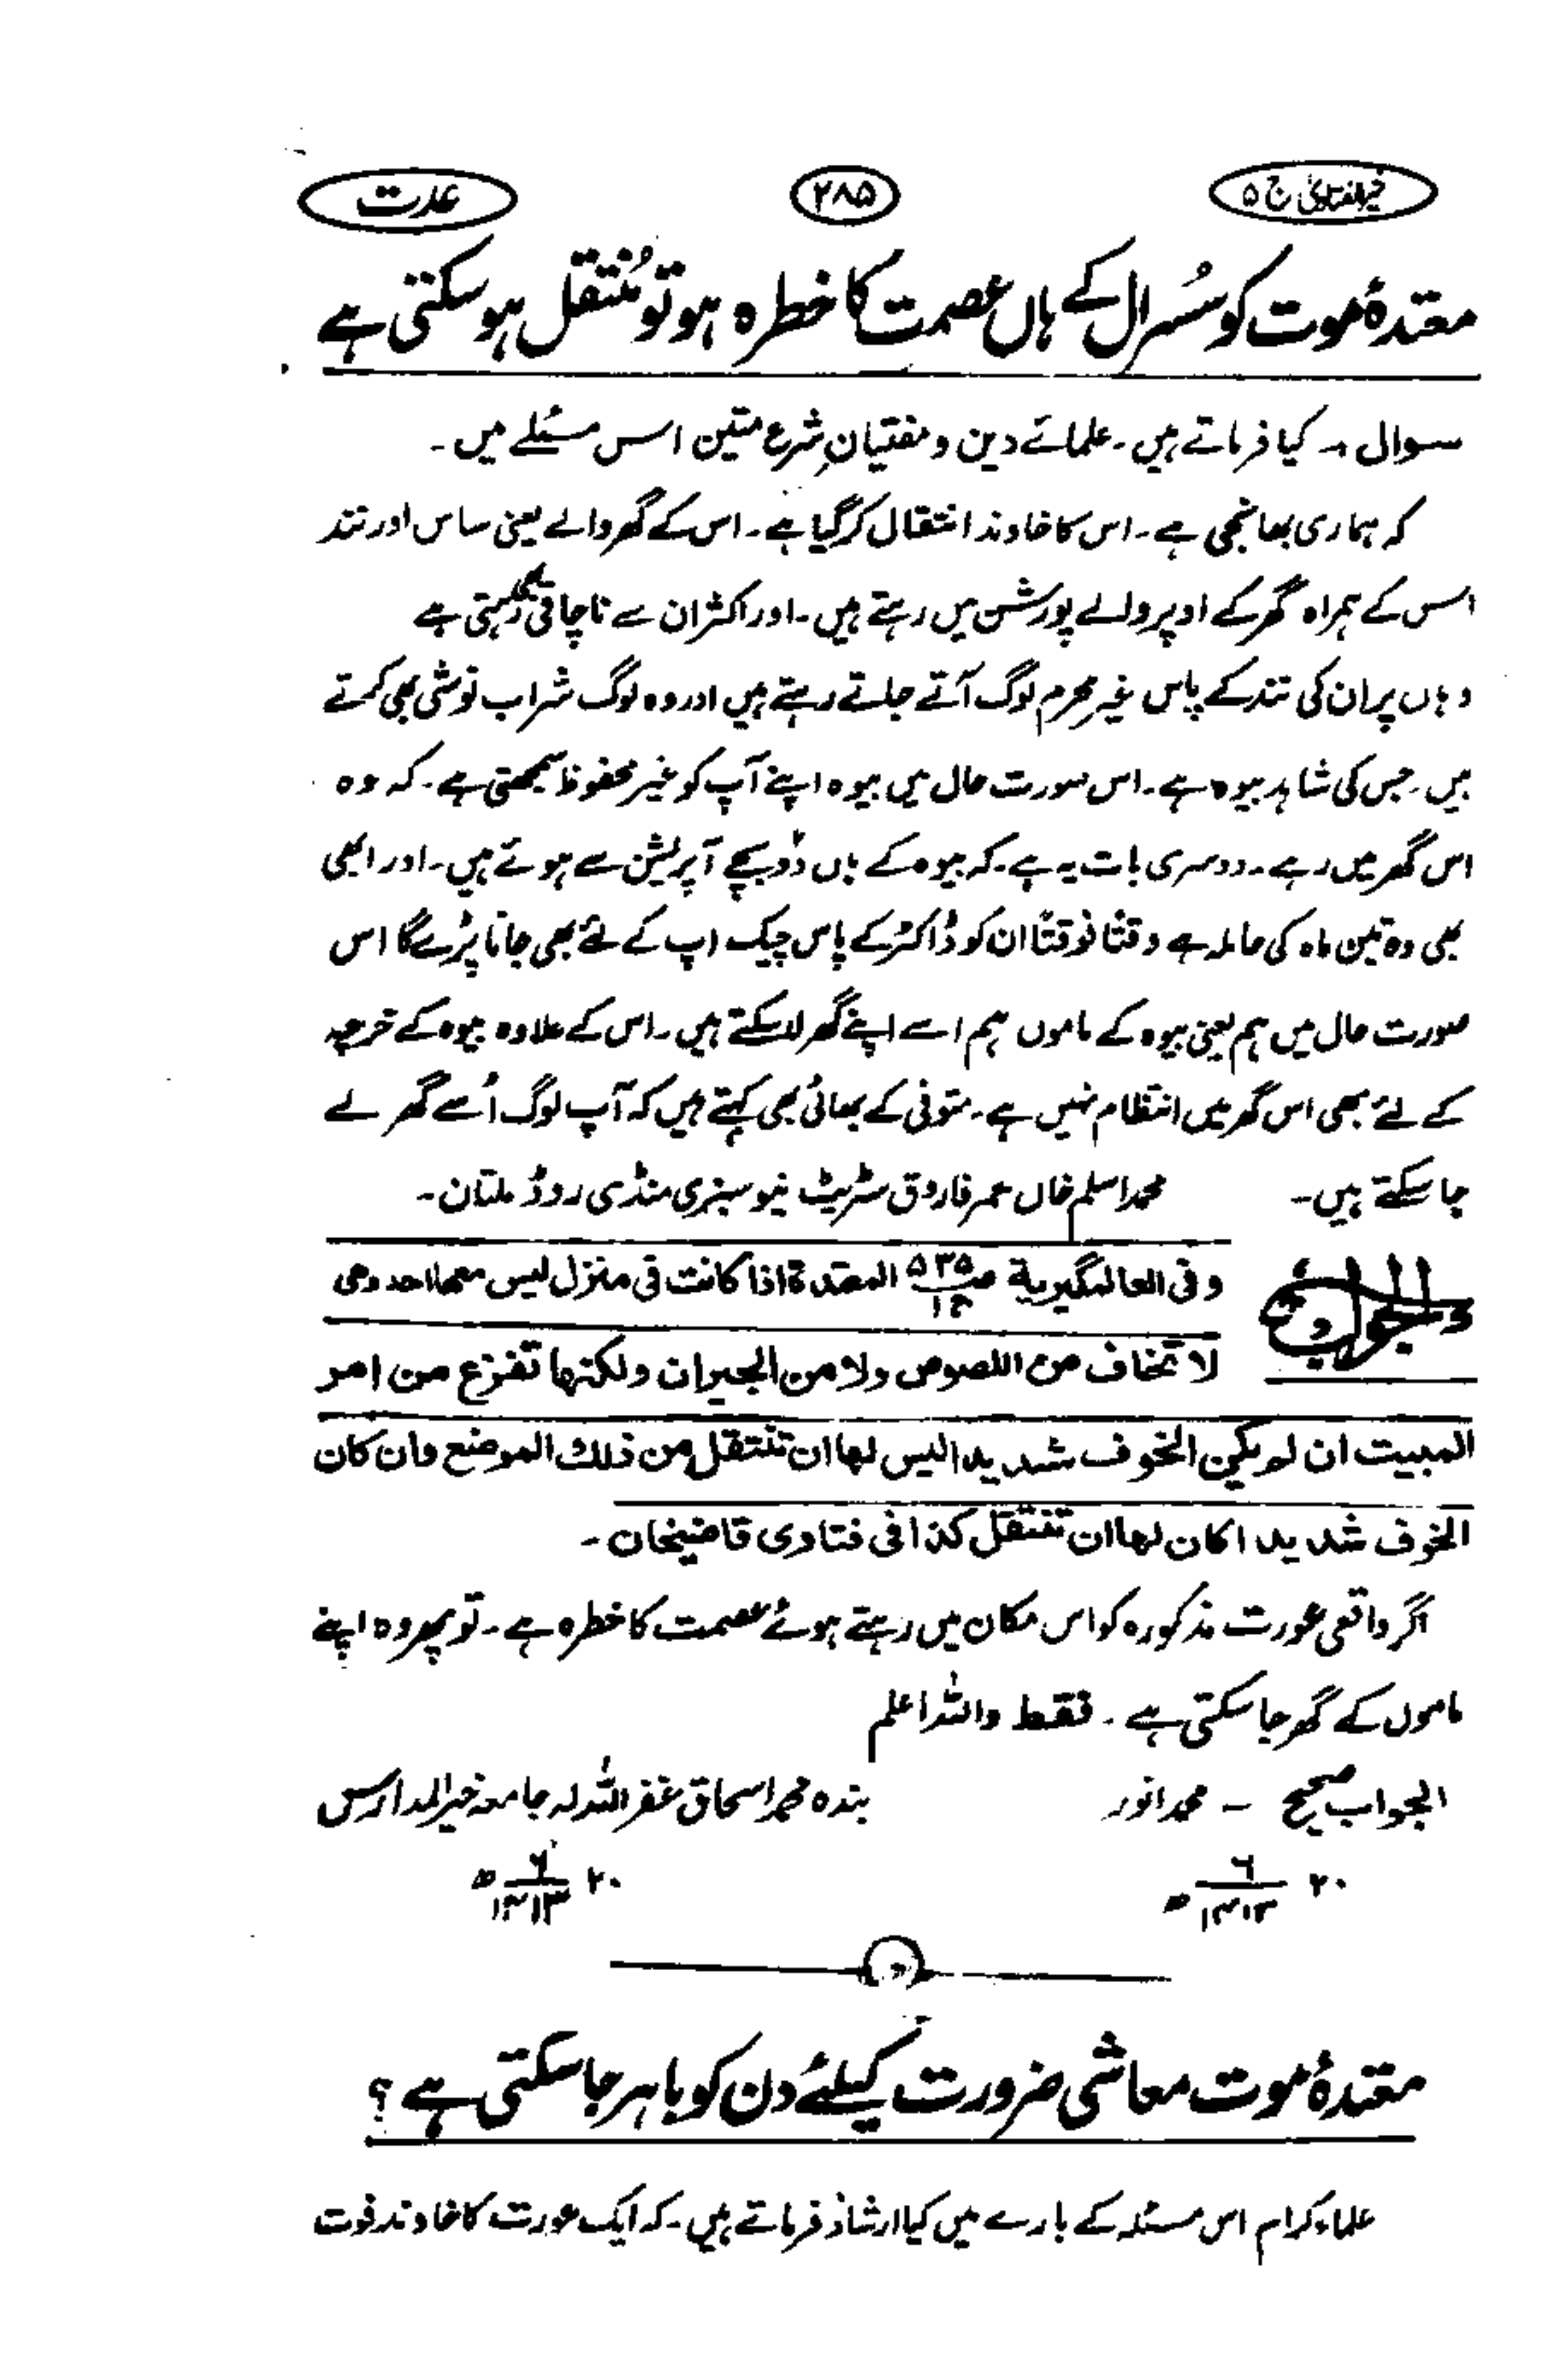 خیر الفتاویٰ ج ۵
۲۸۵
عدت
معتدۂ موت کو سُسرال کے ہاں عصمت کا خطرہ ہو تو مُنتقل ہو سکتی ہے
سوال :۔ کیا فرماتے ہیں۔ علمائے دین و مفتیانِ شرع متین اس مسئلے میں۔
کہ ہماری بھانجی ہے۔ اس کا خاوند انتقال کر گیا ہے۔ اس کے گھر والے یعنی ساس اور نند
اس کے ہمراہ گھر کے اوپر والے پورشن میں رہتے ہیں۔ اور اکثر ان سے ناچاقی رہتی ہے
وہاں پر ان کی نند کے پاس غیر محرم لوگ آتے جاتے رہتے ہیں اور وہ لوگ شراب نوشی بھی کرتے
ہیں۔ جس کی شاہد بیوہ ہے۔ اس صورت حال میں بیوہ اپنے آپ کو غیر محفوظ سمجھتی ہے۔ کہ وہ
اس گھر میں رہے۔ دوسری بات یہ ہے۔ کہ بیوہ کے ہاں دو بچے آپریشن سے ہوئے ہیں۔ اور ابھی
بھی وہ تین ماہ کی حاملہ ہے وقتاً فوقتاً ان کو ڈاکٹر کے پاس چیک اپ کے لئے بھی جانا پڑے گا اس
صورت حال میں ہم یعنی بیوہ کے ماموں ہم اسے اپنے گھر لا سکتے ہیں۔ اس کے علاوہ بیوہ کے خرچہ
کے لئے بھی اس گھر میں انتظام نہیں ہے۔ متوفی کے بھائی بھی کہتے ہیں کہ آپ لوگ اُسے گھر لے
جا سکتے ہیں۔ محمد اسلم خاں عمر فاروق سٹریٹ نیو سبزی منڈی روڈ ملتان۔
الجواب وفی العالمگیریة ص۵۳۵ ج۱ المعتدة اذا کانت فی منزل لیس معها احد وهی
لا تخاف من اللصوص ولا من الجیران ولکنها تفزع من امر
المبیت ان لم یکن الخوف شدیدا لیس لها ان تنتقل من ذلك الموضع وان کان
الخوف شدیدا کان لها ان تنتقل کذا فی فتاوی قاضیخان۔
اگر واقعی عورت مذکورہ کو اس مکان میں رہتے ہوئے عصمت کا خطرہ ہے۔ تو پھر وہ اپنے
ماموں کے گھر جا سکتی ہے۔ فقط واللہ اعلم
الجواب صحیح – محمد انور بندہ محمد اسحاق غفر اللہ لہ جامعہ خیر المدارس
۲۰ ۶ ھ ۲۰ ۶ ۱۴۱۳ ھ
معتدۂ موت معاشی ضرورت کیلئے دن کو باہر جا سکتی ہے ؟
علماء کرام اس مسئلہ کے بارے میں کیا ارشاد فرماتے ہیں۔ کہ ایک عورت کا خاوند فوت